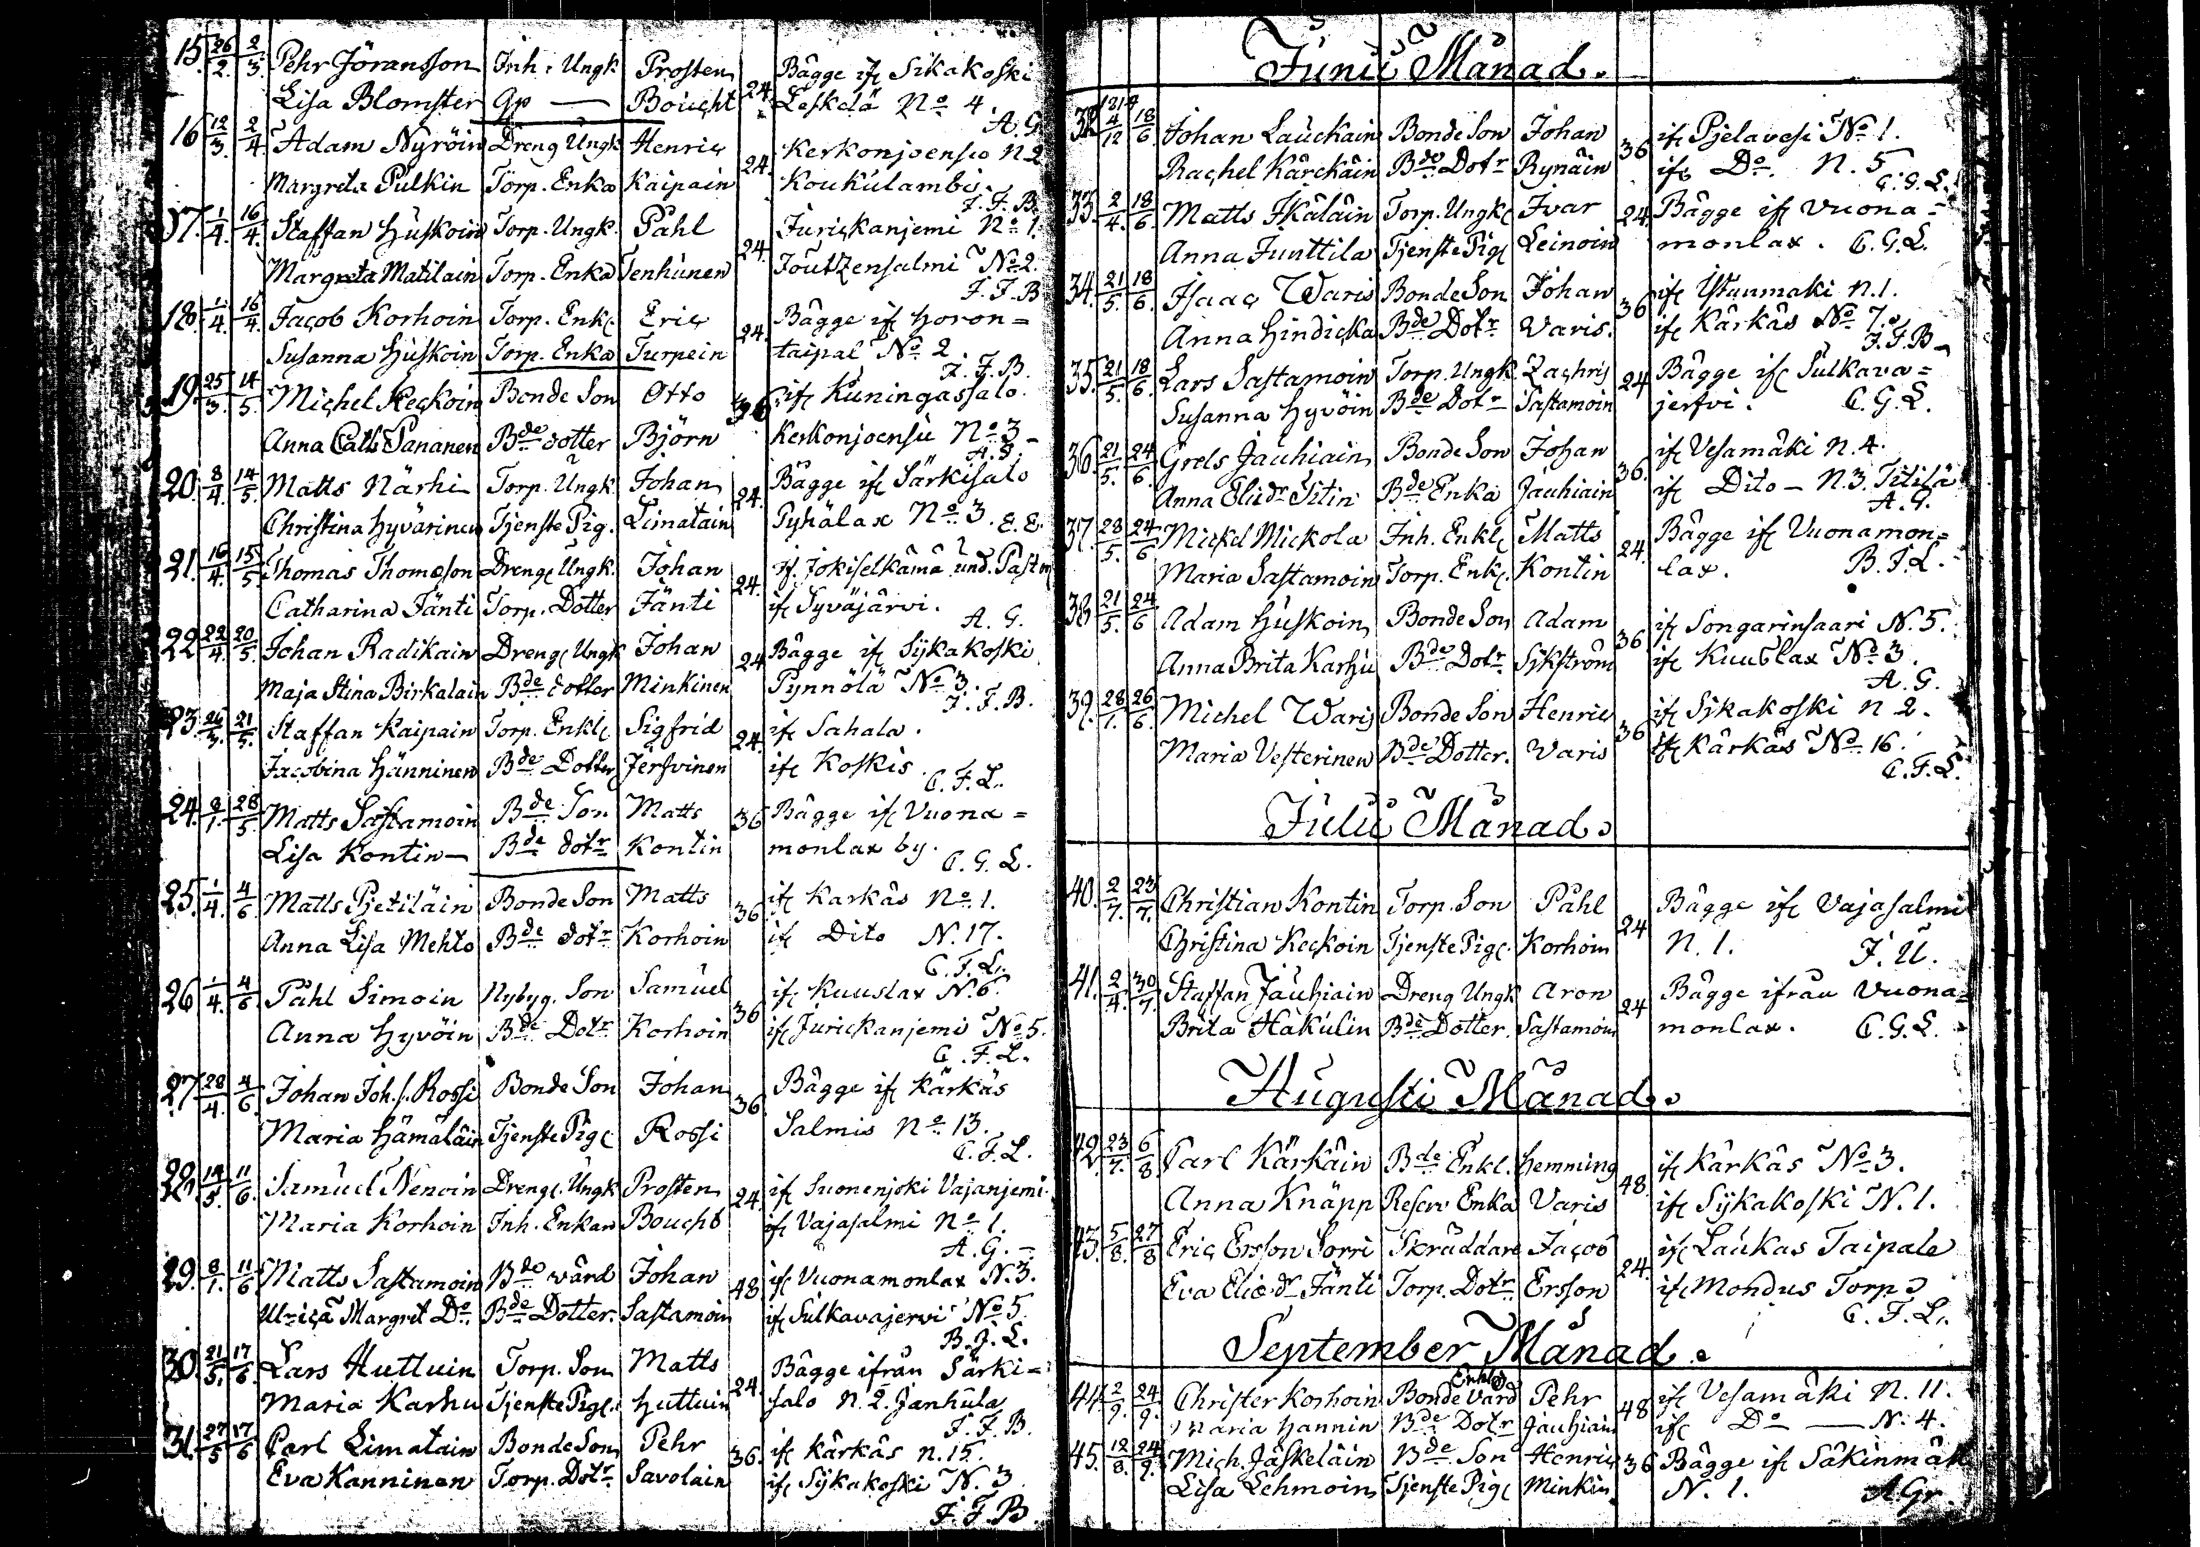 15. 26/2. 2/3. Pehr Jöransson Inh. Ungk. Prosten 24. Bägge ifr Sikakoski
Lisa Blomster Gp — Boucht Leskelä No 4 A.G.
16 12/3. 2/4. Adam Nyröin Dreng Ungk. Henric 24. Kerkonjoensu N.2
Margreta Pulkin Torp. Enka Kaipain Koukulambi. J.F.B.
17. 1/4. 16/4. Staffan Huskoin Torp. Ungk. Påhl 24. Jurickanjemi No 1.
Margreta Matilain Torp. Enka Tenhunen Joutzensalmi No 2. J.F.B
18. 1/4. 16/4. Jacob Korhoin Torp. Enkl. Eric 24. Bägge ifr Horon=
Susanna Huskoin Torp. Enka Turpein taipal No 2 J.F.B.
19. 25/3. 14/5. Michel Keckoin Bonde Son Otto 36 ifr Kuningassalo.
Anna Cath. Pananen Bde dotter Björn Kerkonjoensu No 3 A.G.
20. 8/4. 14/5. Matts Närhi Torp. Ungk. Johan 24. Bägge ifr Särkisalo
Christina Hyvärinen Tjenste Pig. Limatain Pyhälax No 3. E.E.
21. 16/4. 15/5. Thomas Thomasson Dreng Ungk. Johan 24. ifr Jokiselkämä und. Past
Catharina Jänti Torp. Dotter Jänti ifr Syväjärvi. A.G.
22. 22/4. 20/5. Johan Radikain Dreng Ungk Johan 24. Bägge ifr Sykakoski
Maja Stina Birkalain Bde dotter Minkinen Pynnölä No 3. J.F.B.
23. 26/3. 21/5. Staffan Kaipain Torp. Enkl. Sigfrid 24. ifr Sahala.
Jacobina Hänninen Bde Dotter Jerfvinen ifr Koskis C.F.L.
24. 8/1. 28/5. Matts Sastamoin Bde Son Matts 36 Bägge ifr Vuona=
Lisa Kontin— Bde dotr Kontin monlax by. C.G.L.
25. 1/4. 4/6. Matts Pjetiläin Bonde Son Matts 36 ifr Karkäs No 1.
Anna Lisa Mehto Bde dotr Korhoin ifr Dito N.17. C.F.L.
26 1/4. 4/6. Påhl Simoin Nybyg. Son Samuel 36 ifr Kuuslax N.6.
Anna Hyvöin Bde Dotr Korhoin ifr Jurickanjemi No 5. C.F.L.
27. 28/4. 4/6. Johan Joh.s. Rossi Bonde Son Johan 36 Bägge ifr Kärkäs
Maria Hämäläin Tjenste Pig Rossi Salmis No 13. C.F.L.
28. 14/5. 11/6. Samuel Nenoin Dreng. Ungk Prosten 24. ifr Suonenjoki Vajanjemi.
Maria Korhoin Inh. Enkan Boucht ifr Vajasalmi No 1. A.G.—
29. 8/1. 11/6 Matts Sastamoin Bde värd Johan 48 ifr Vuonamonlax N.3.
Ulrica Margret Do Bde Dotter. Sastamoin ifr Sulkavajervi No 5. B.J.L.
30. 21/5. 17/6 Lars Huttuin Torp. Son Matts 24. Bägge ifrån Särki=
Maria Karhu Tjenste Pig. Huttuin salo N.2. Janhula J.F.B.
31. 27/5 17/6 Carl Limatain Bonde Son Pehr 36. ifr Kärkäs N.15.
Eva Kanninen Torp. Dotr Savolain ifr Sykakoski N.3 J.F.B
Junii Månad.
32. 1814 4/12 18/6. Johan Lauckain Bonde Son Johan 36 ifr Pjelavesi No 1.
Rachel Kärckäin Bde Dotr Rynäin ifr Do. N.5 C.G.L.
33. 2/4. 18/6. Matts Ikäläin Torp. Ungk. Ivar 24. Bägge ifr Vuona=
Anna Junttila Tjenste Pig Leinoin monlax. C.G.L.
34. 21/5. 18/6. Isaac Waris Bonde Son Johan 36 ifr Istunmaki N.1.
Anna Hindicka Bde Dotr Varis. ifr Kärkäs No 7. J.F.B
35. 21/5. 18/6. Lars Sastamoin Torp. Ungk. Zachris 24 Bägge ifr Sulkava=
Susanna Hyvöin Bde Dotr Sastamoin jerfvi. C.G.L.
36. 21/5. 24/6. Grels Jauhiain Bonde Son Johan 36. ifr Vesamäki N.4.
Anna Eliædr Titin Bde Enka Jauhiain ifr Dito— N.3. Titilä A.G.
37. 28/5. 24/6 Mickel Mickola Inh. Enkl. Matts 24. Bägge ifr Vuonamon=
Maria Sastamoin Torp. Enk. Kontin lax. B.J.L.
38 21/5. 24/6 Adam Huskoin Bonde Son Adam 36 ifr Songarinsaari N.5.
Anna Brita Karhu Bde Dotr Sykström ifr Kuuslax No 3. A.G.
39. 28/1. 26/6. Michel Waris Bonde Son Henric 36 ifr Sykakoski N 2.
Maria Vesterinen Bde Dotter. Varis ifr Kärkäs No 16. C.F.L.
Julii Månad.
40. 2/7. 23/7. Christian Kontin Torp. Son Påhl 24 Bägge ifr Vajasalmi
Christina Keckoin Tjenste Pig. Korhoin N.1. J.U.
41. 2/4. 30/7. Staffan Jauhiain Dreng Ungk Aron 24 Bägge ifrån Vuona=
Brita Hakulin Bde Dotter. Sastamoin monlax. C.G.L.
Augusti Månad.
42 23/7. 6/8. Carl Kärkäin Bde Enkl. Hemming 48 ifr Kärkäs No 3.
Anna Knäpp Reserv Enka Varis ifr Sykakoski N.1.
43. 5/8. 27/8 Eric Ersson Sorri Skräddare Jacob 24. ifr Laukas Taipale
Eva Eliædr Jänti Torp. Dotr Ersson ifr Mondus Torp C.F.L.
September Månad.
44 2/9. 24/9. Christer Korhoin Bonde värd Enkl. Pehr 48 ifr Vesamäki N.11.
Maria Hannin Bde Dotr Jauhiain ifr Do — N.4.
45. 12/8. 24/9. Mich. Jäskeläin Bde Son Henric 36 Bägge ifr Säkinmäk
Lisa Lehmoin Tjenste Pig Minkin N.1. A Gr.